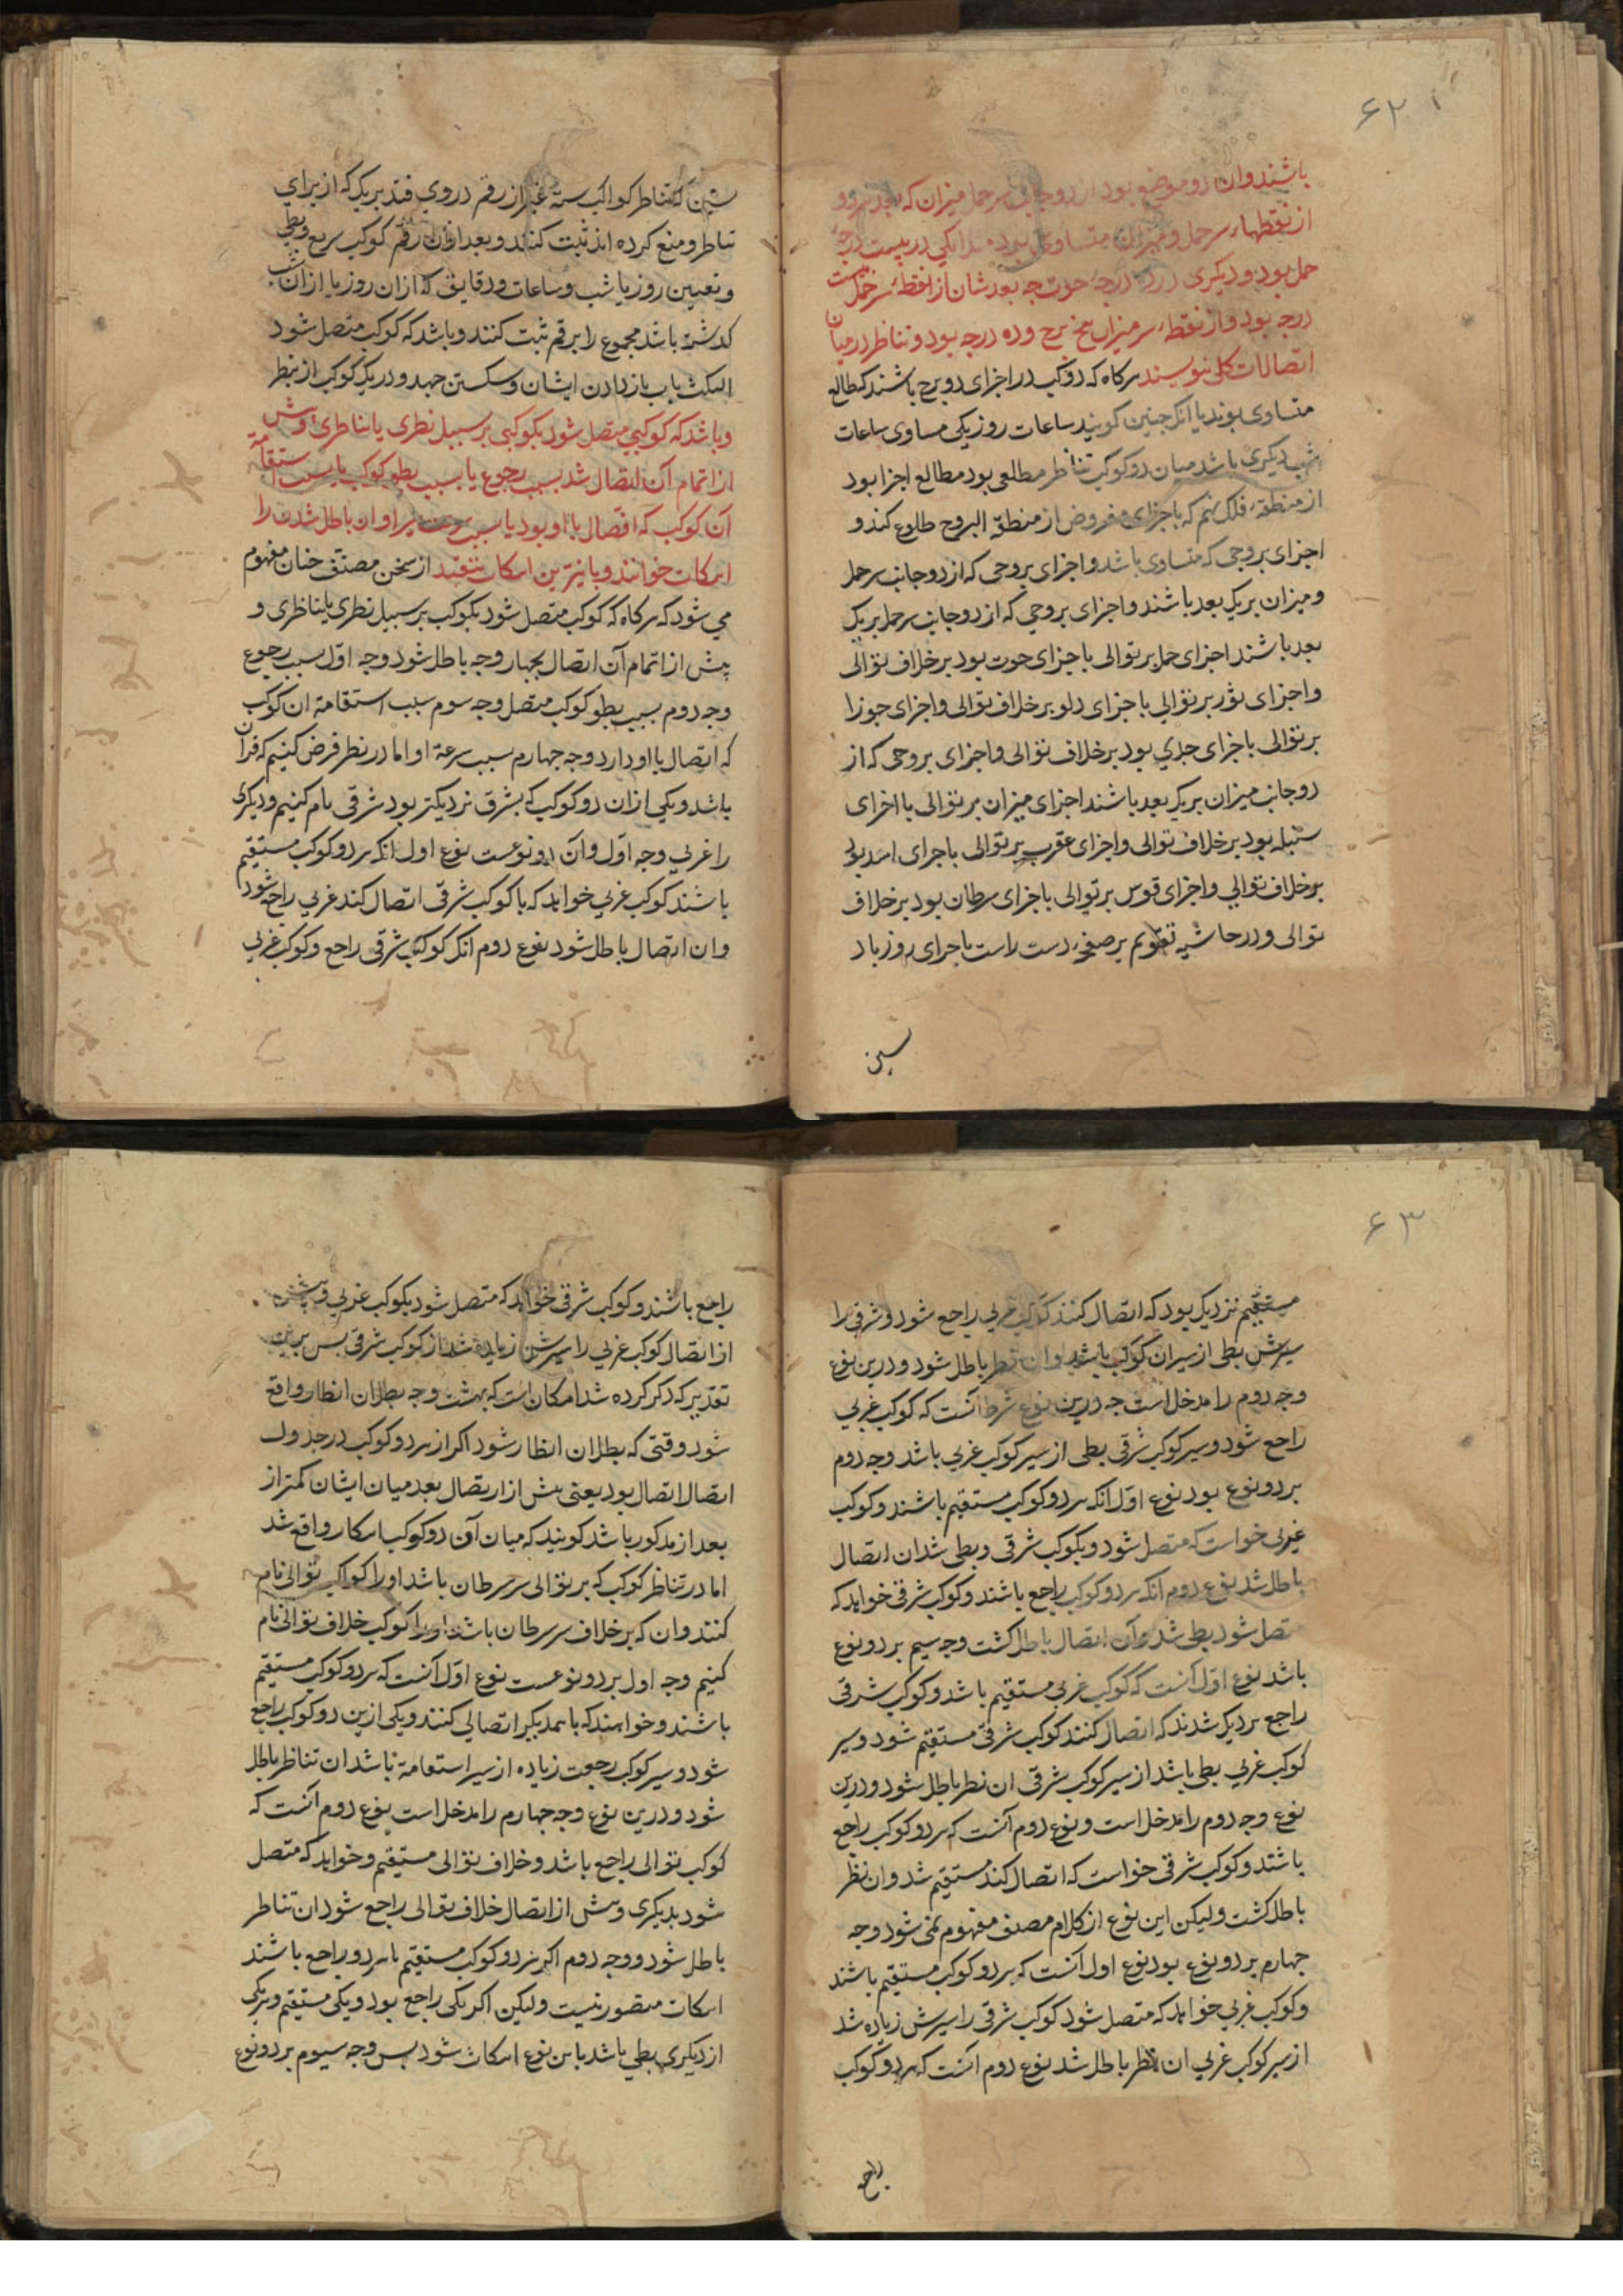 ۶۲
باشند وان دو موضع بود از دو جانب سر حمل میزان که بعد هر دو
از نقطهاء سر حمل و میزان متساوی بود مثلا یکی در بیست درجهٔ
حمل بود و دیگری در ده درجهٔ حوت چه بعد شان از نقطهٔ سر حمل بیست
درجه بود و از نقطهٔ سر میزان پنج برج و ده درجه بود و تناظر در میان
اتصالات کلی بنویسند هرکاه که دو کوکب در اجزای دو برج باشند که مطالع
متساوی بوند یا آنکه چنین کویند ساعات روز یکی مساوی ساعات
شب دیکری باشد میان دو کوکب تناظر مطلعی بود مطالع اجزا بود
از منطقهٔ فلک نهم که با جزای مفروض از منطقة البروج طلوع کند و
اجزای بروجی که متساوی باشد و اجزای بروجی که از دو جانب سر حمل
و میزان بریک بعد باشند و اجزای بروجی که از دو جانب سر حمل بریک
بعد باشند اجزای حمل بر توالی با جزای حوت بود بر خلاف توالی
و اجزای ثور بر توالی با جزای دلو بر خلاف توالی و اجزای جوزا
بر توالی با جزای جدی بود بر خلاف توالی و اجزای بروجی که از
دو جانب میزان بریک بعد باشند اجزای میزان بر توالی با اجزای
سنبله بود بر خلاف توالی و اجزای عقرب بر توالی با جرای اسد بود
بر خلاف توالی و اجزای قوس بر توالی با جزای سرطان بود بر خلاف
توالی و در حاشیه تقویم بر صفحهٔ دست راست باجرای روز باد
سین
سین که تناظر کواکب سته غیر از رقم در وی قند بریک که از برای
تناظر وضع کرده اند ثبت کنند و بعد ازان رقم کوکب سریع و بطی
و تعیین روز یا شب و ساعات و دقایق که ازان روز یا ازان شب
کذشته باشد مجموع را برقم ثبت کنند و باشد که کوکب متصل شود
امکث باب بازدادن ایشان و سکستن جهد و در یک کوکب از نظر
و باشد که کوکبی متصل شود بکوکبی بر سبیل نظری یا تناظری و پیش
از اتمام آن اتصال شد بسبب رجوع یا بسبب بطو کوکب یا بسبب استقامة
آن کوکب که اتصال با او بود یا بسبب سرعت سیر او ان باطل شدن را
امکات خوانند و بانیزین امکات نیفتد از سخن مصنف چنان مفهوم
می شود که هرکاه که کوکب متصل شود بکوکب بر سبیل نظری یا تناظری و
پیش از اتمام آن اتصال بچهار وجه باطل شود وجه اوّل بسبب رجوع
وجه دوم بسبب بطو کوکب متصل وجه سوم بسبب استقامة ان کوکب
که اتصال با او دارد وجه چهارم بسبب سرعة او اما در نظر فرض کنیم که قران
باشد و یکی ازان دو کوکب که بشرق نزدیکتر بود شرقی نام کنیم و دیکری
را غربی وجه اوّل وآن دو نوعست نوع اول انکه هر دو کوکب مستقیم
باشند کوکب غربی خواهد که با کوکب شرقی اتصال کند غربی راجع شود
وان اتصال باطل شود نوع دوم انکه کوکب شرقی راجع و کوکب غربی
۶۳
مستقیم نزدیک بود که اتصال کنند کوکب غربی راجع شود و شرقی را
سیرش بطی از سیران کوکب باشد وان نظر باطل شود و درین نوع
وجه دوم را مدخل است چه درین نوع شرط آنست که کوکب غربی
راجع شود و سیر کوکب شرقی بطی از سیر کوکب غربی باشد وجه دوم
بر دو نوع بود نوع اوّل انکه هر دو کوکب مستقیم باشند و کوکب
غربی خواست که متصل شود و بکوکب شرقی و بطی شد ان اتصال
باطل شد نوع دوم انکه هر دو کوکب راجع باشند و کوکب شرقی خواهد که
متصل شود بطی شد وآن اتصال باطل کشت وجه سیم بر دو نوع
باشد نوع اوّل آنست که کوکب غربی مستقیم باشد و کوکب شرقی
راجع نزدیک شدند که اتصال کنند کوکب شرقی مستقیم شود و سیر
کوکب غربی بطی باشد از سیر کوکب شرقی ان نظر باطل شود و درین
نوع وجه دوم را مدخل است و نوع دوم آنست که هر دو کوکب راجع
باشند و کوکب شرقی خواست که اتصال کند مستقیم شد وان نظر
باطل کشت ولیکن این نوع از کلام مصنف مفهوم نمی شود وجه
چهارم بر دو نوع بود نوع اول آنست که هر دو کوکب مستقیم باشند
و کوکب غربی خواهد که متصل شود کوکب شرقی را سیرش زیاده شد
از سیر کوکب غربی ان نظر باطل شد نوع دوم انست که هر دو کوکب
راجع
راجع باشند و کوکب شرقی خواهد که متصل شود بکوکب غربی و پیش
از اتصال کوکب غربی را سیرش زیاده شد از کوکب شرقی بس برین
تقدیر که ذکر کرده شد امکان است که بهشت وجه بطلان انظار واقع
شود وقتی که بطلان انظار شود اکر از هر دو کوکب در جدول
اتصالا اتصال بود یعنی پیش از اتصال بعد میان ایشان کمتر از
بعد از مذکور باشد کویند که میان آن دو کوکب امکار واقع شد
اما در تناظر کوکب که بر توالی سر سرطان باشد او را کواکب توالی نام
کنند وان که بر خلاف سر سرطان باشد او را کوکب خلاف توالی نام
کنیم وجه اول بر دو نوعست نوع اوّل آنست که هر دو کوکب مستقیم
باشند و خواهند که با همدیکر اتصالی کنند و یکی ازین دو کوکب راجع
شود و سیر کوکب رجعت زیاده از سیر استقامة باشد ان تناظر باطل
شود و درین نوع وجه چهارم را مدخل است نوع دوم آنست که
کوکب توالی راجع باشد و خلاف توالی مستقیم و خواهد که متصل
شود بدیکری و پیش از اتصال خلاف توالی راجع شود ان تناظر
باطل شود و وجه دوم اکر هر دو کوکب مستقیم یا هر دو راجع باشند
امکات متصور نیست ولیکن اکر یکی راجع بود و یکی مستقیم و یکی
از دیکری بطی باشد باین نوع امکات شود بس وجه سیوم بر دو نوع